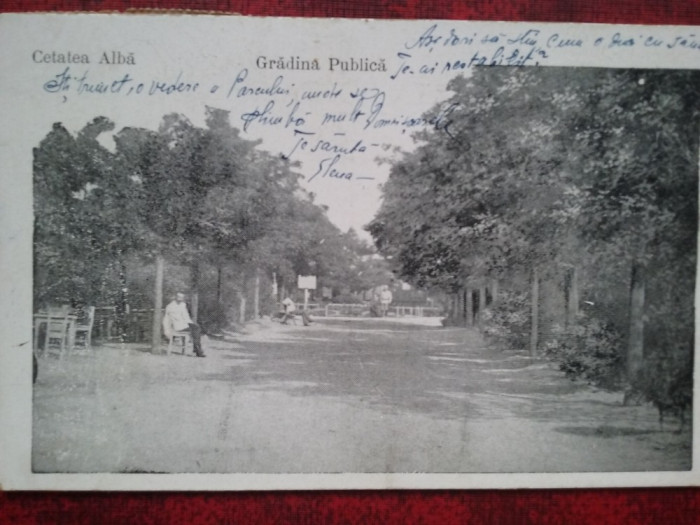 Cetatea Albă
Grădină Publică
Aș dori să știu, cum o duci cu sănă
Te-ai restabilit?
Îți trimet, o vedere a Parcului, unde se
plimbă mult Domnișoarele
Te sărută
Elena